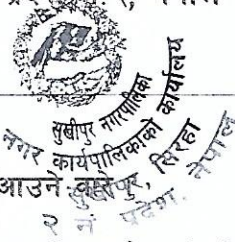 सुखीपुर नगरपालिका
नगर कार्यपालिकाको कार्यालय
सुखीपुर, सिरहा
२ नं प्रदेश, नेपाल
आउने